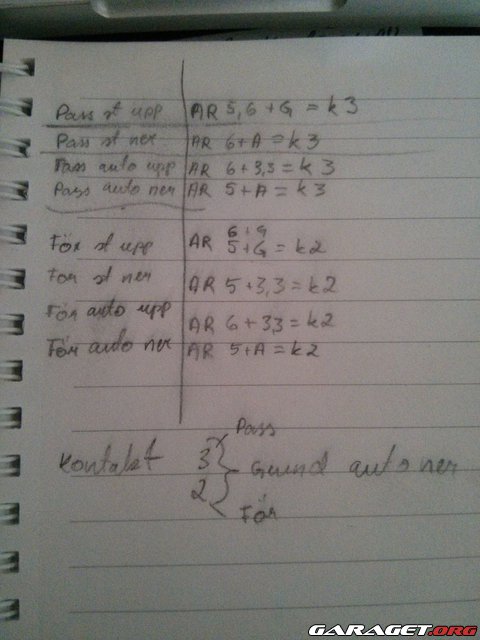 Pass st upp AR 5,6 + G = k3
Pass st ner AR 6+A = k3
Pass auto upp AR 6+3,3 = k3
Pass auto ner AR 5+A = k3
6+G
För st upp AR 5+G = k2
För st ner AR 5+3,3 = k2
För auto upp AR 6+3,3 = k2
För auto ner AR 5+A = k2
Pass
Kontakt 3 auto ner
2
För
GARAGET.ORG